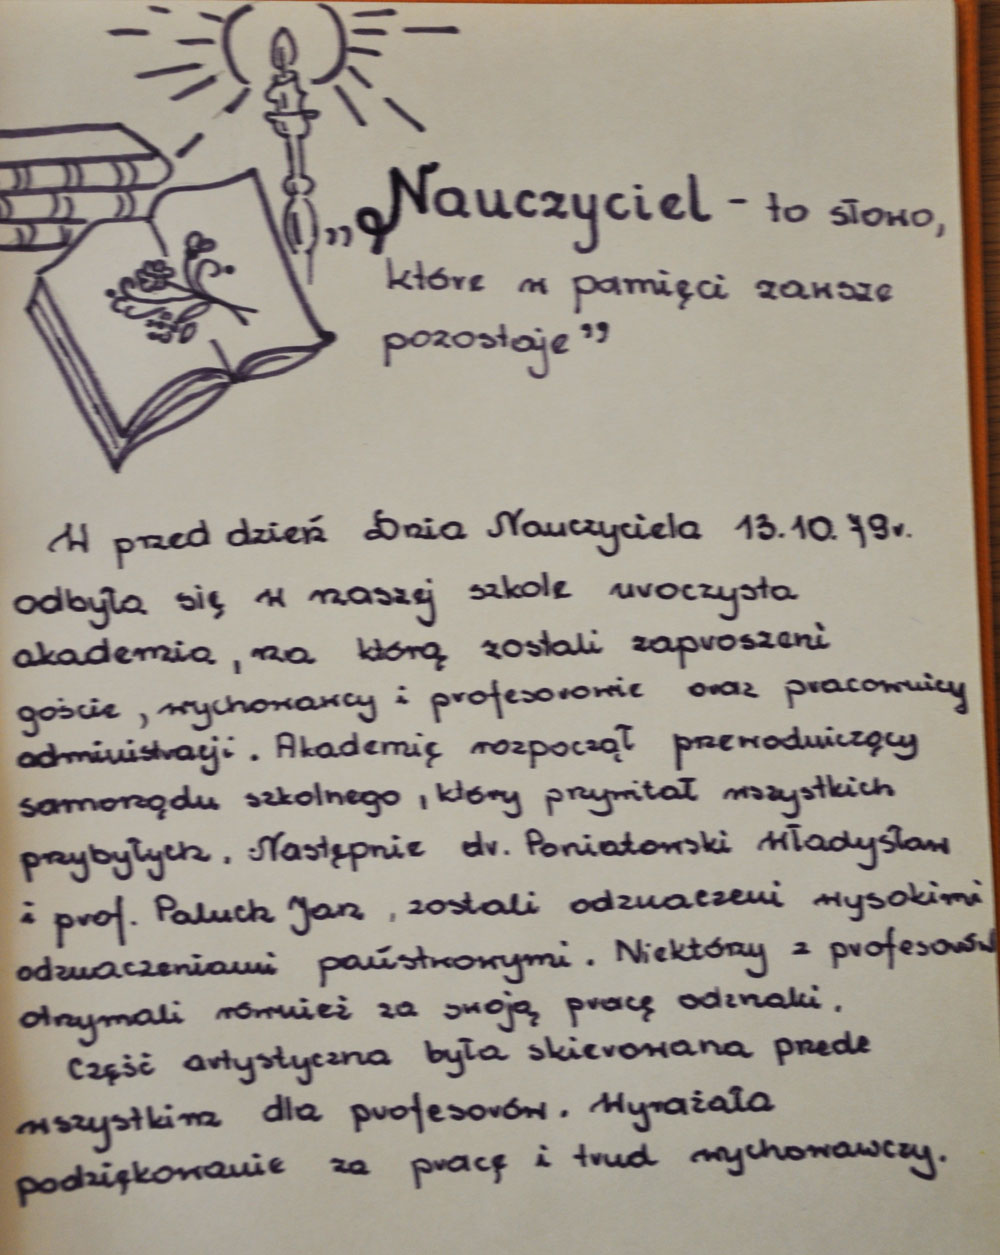 „Nauczyciel - to słowo,
które w pamięci zawsze
pozostaje”
W przed dzień Dnia Nauczyciela 13.10.79r.
odbyła się w naszej szkole uroczysta
akademia, na którą zostali zaproszeni
goście, wychowawcy i profesorowie oraz pracownicy
administracji. Akademię rozpoczął przewodniczący
samorządu szkolnego, który przywitał wszystkich
przybyłych. Następnie dr. Poniatowski Władysław
i prof. Paluch Jan, zostali odznaczeni wysokimi
odznaczeniami państwowymi. Niektórzy z profesorów
otrzymali również za swoją pracę odznaki.
Część artystyczna była skierowana przede
wszystkim dla profesorów. Wyrażała
podziękowanie za pracę i trud wychowawczy.